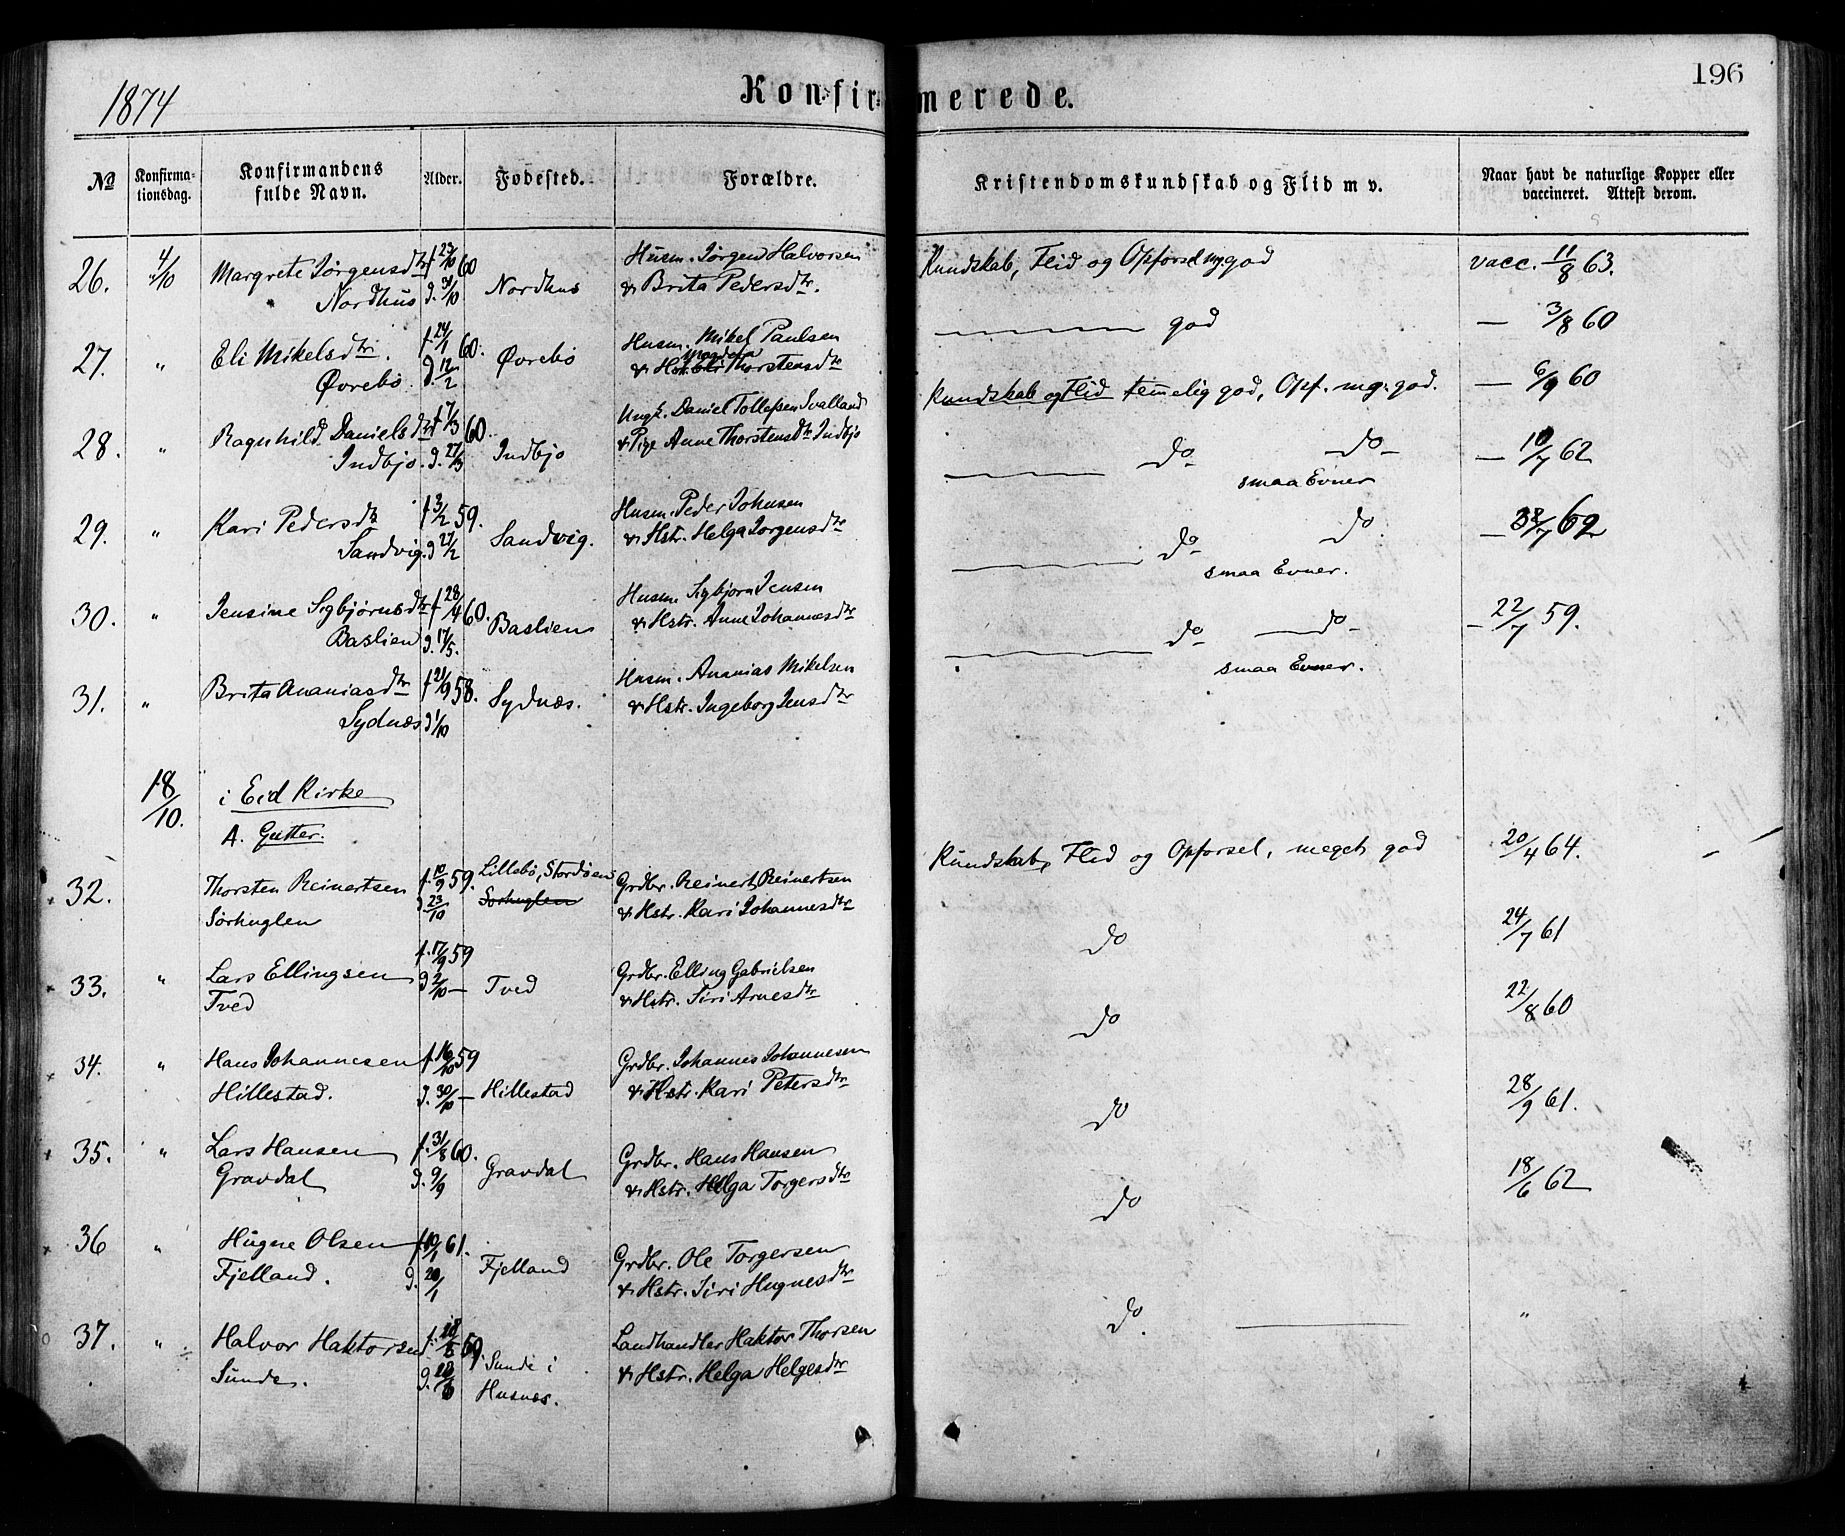 1874
Konfirmerede.
196
No
Konfirmationsdag.
Konfirmandens fulde Navn.
Alder.
Fødested.
Forældre.
Kristendomskundskab og Flid m v.
Naar havt de naturlige Kopper eller vaccineret. Attest derom.
26. 4/10 Margrete Jørgensdtr f 27/10 60 Husm. Jørgen Halvorsen Kundskab, Flid og Opførsel mg. god vacc. 11/8 63.
Nordhus d. 30/10 Nordhus & Brita Pedersdtr.
27. " Eli Mikelsdtr. f 24/1 60. Øvrebø Husm. Mikel Paulsen god — 3/8 60
Øvrebø. d. 12/2 & Thorstensdtr
28. " Ragnhild Danielsdtr f 7/3 60. Indbjo Ungk. Daniel Tollefsen Svalland Kundskab og Flid temmelig god, Opf. mg. god. — 6/9 60
Indbjo. d. 27/3 & Pige Anne Thorstensdtr Indbjo
29. " Kari Pedersdtr f 3/2 59. Sandvig. Husm. Peder Johnsen do do — 10/7 62
Sandvig. d 27/2 & Hstr. Helga Jørgensdtr smaa Evner
30. " Jensine Sigbjørnsdtr f 28/4 60. Bastlien Husm. Sigbjørn Jensen do do. — 7 62
Bastlien d. 17/5. & Hstr. Anne Johannesdtr smaa Evner.
31. " Brita Ananiasdtr f 21/9 58. Sydnæs. Husm. Ananias Mikelsen do do — 22/7 59.
Sydnæs d 1/10 & Hstr. Ingeborg Jensdtr smaa Evner.
18/10. i Eid Kirke
A. Gutter.
32. Thorsten Reinertsen f. 10/9 59. Lillebø, Stordøen Grdbr. Reinert Reinertsen Kundskab, Flid og Opførsel, meget god 20/4 64.
Sørhuglen d 23/10 Sørhuglen & Hstr. Kari Johannesdtr
33. " Lars Ellingsen f. 17/9 59 Tved Grdbr. Elling Gabrielsen do 24/7 61
Tved d 2/10 — & Hstr. Siri Arnesdtr
34. " Hans Johannesen f. 16/10 59 Grdbr. Johannes Johannesen do 22/8 60
Hillestad. d. 30/10 — Hillestad & Hstr. Kari Petersdtr
35. " Lars Hansen f. 31/8 60. Gravdal Grdbr. Hans Hansen do 28/9 61.
Gravdal d. 9/9 & Hstr. Helga Torgersdtr
36 " Hugne Olsen f 10/1 61. Fjelland Grdbr. Ole Torgersen do 18/6 62
Fjelland. d. 20/1 & Hstr. Siri Hugnesdtr
37. " Halvor Haktorsen f. Sunde i Landhandler Haktor Thorsen do. "
Sunde. d. Husnæs. & Hstr. Helga Helgesdtr